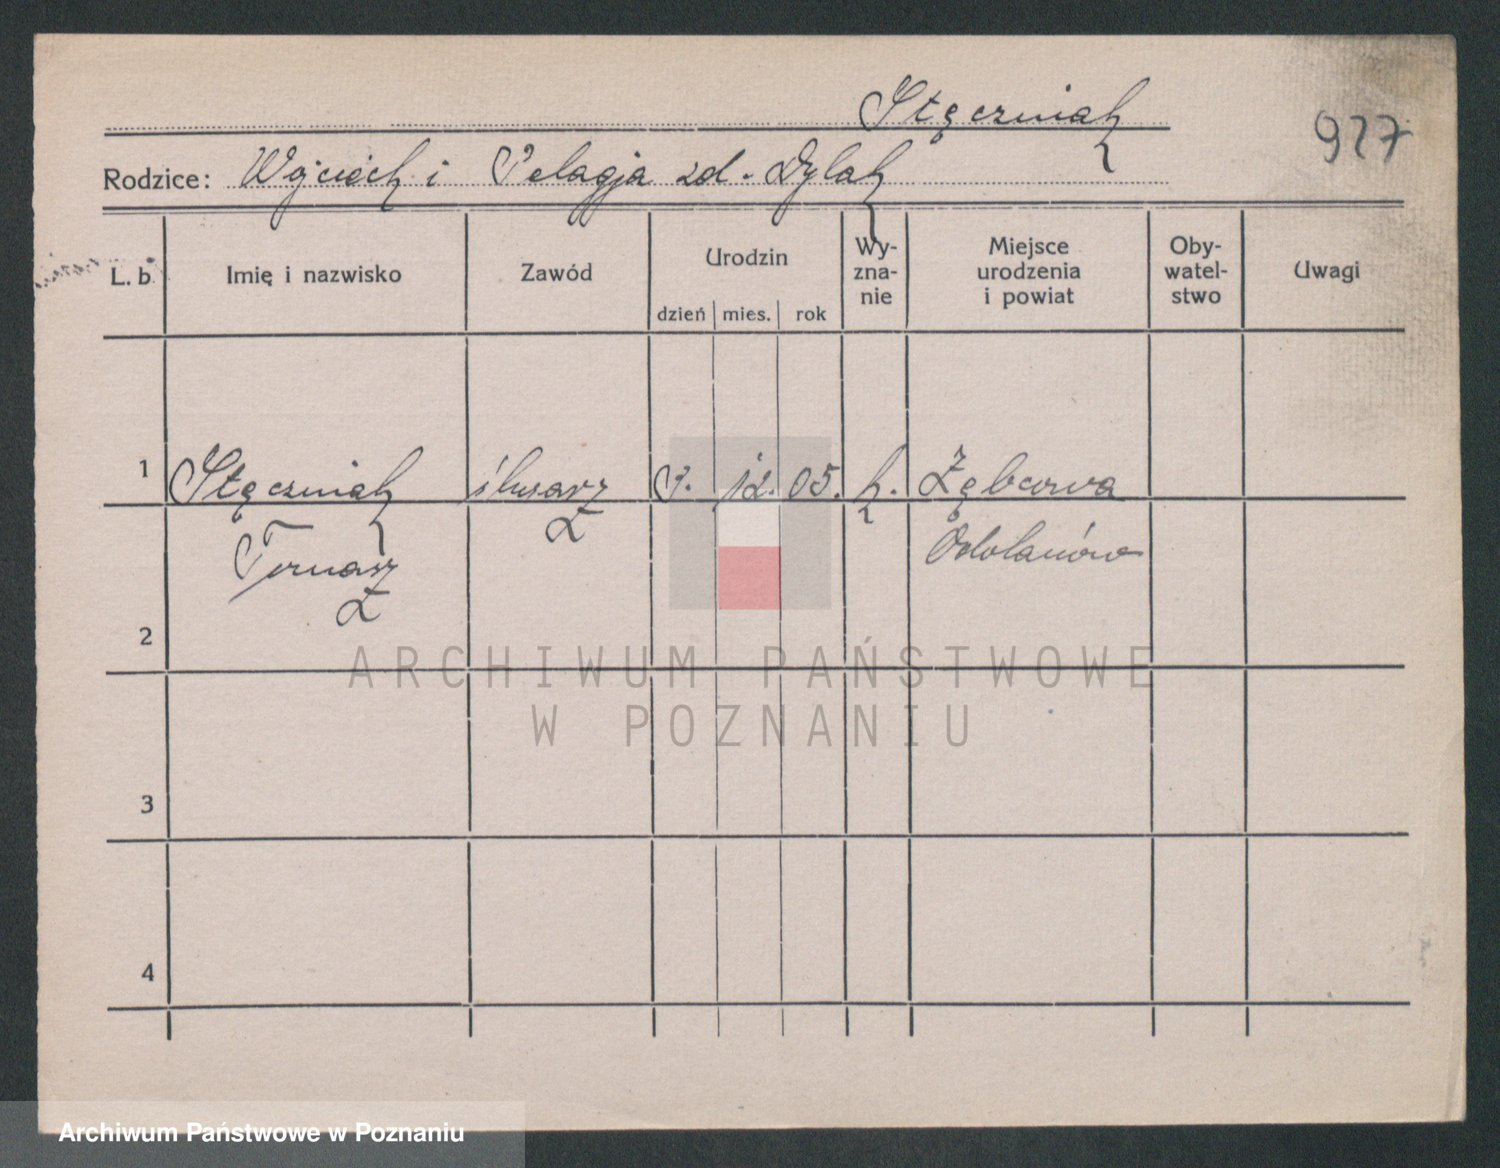 Stęczniak
927
Rodzice: Wojciech i Pelagja zd. Dylak
L. b. Imię i nazwisko Zawód Urodzin Wy-zna-nie Miejsce urodzenia i powiat Oby-watel-stwo Uwagi
dzień mies. rok
1 Stęczniak ślusarz 7. 12. 05. k.
Tomasz Odolanów
2
ARCHIWUM PAŃSTWOWE
W POZNANIU
3
4
Archiwum Państwowe w Poznaniu